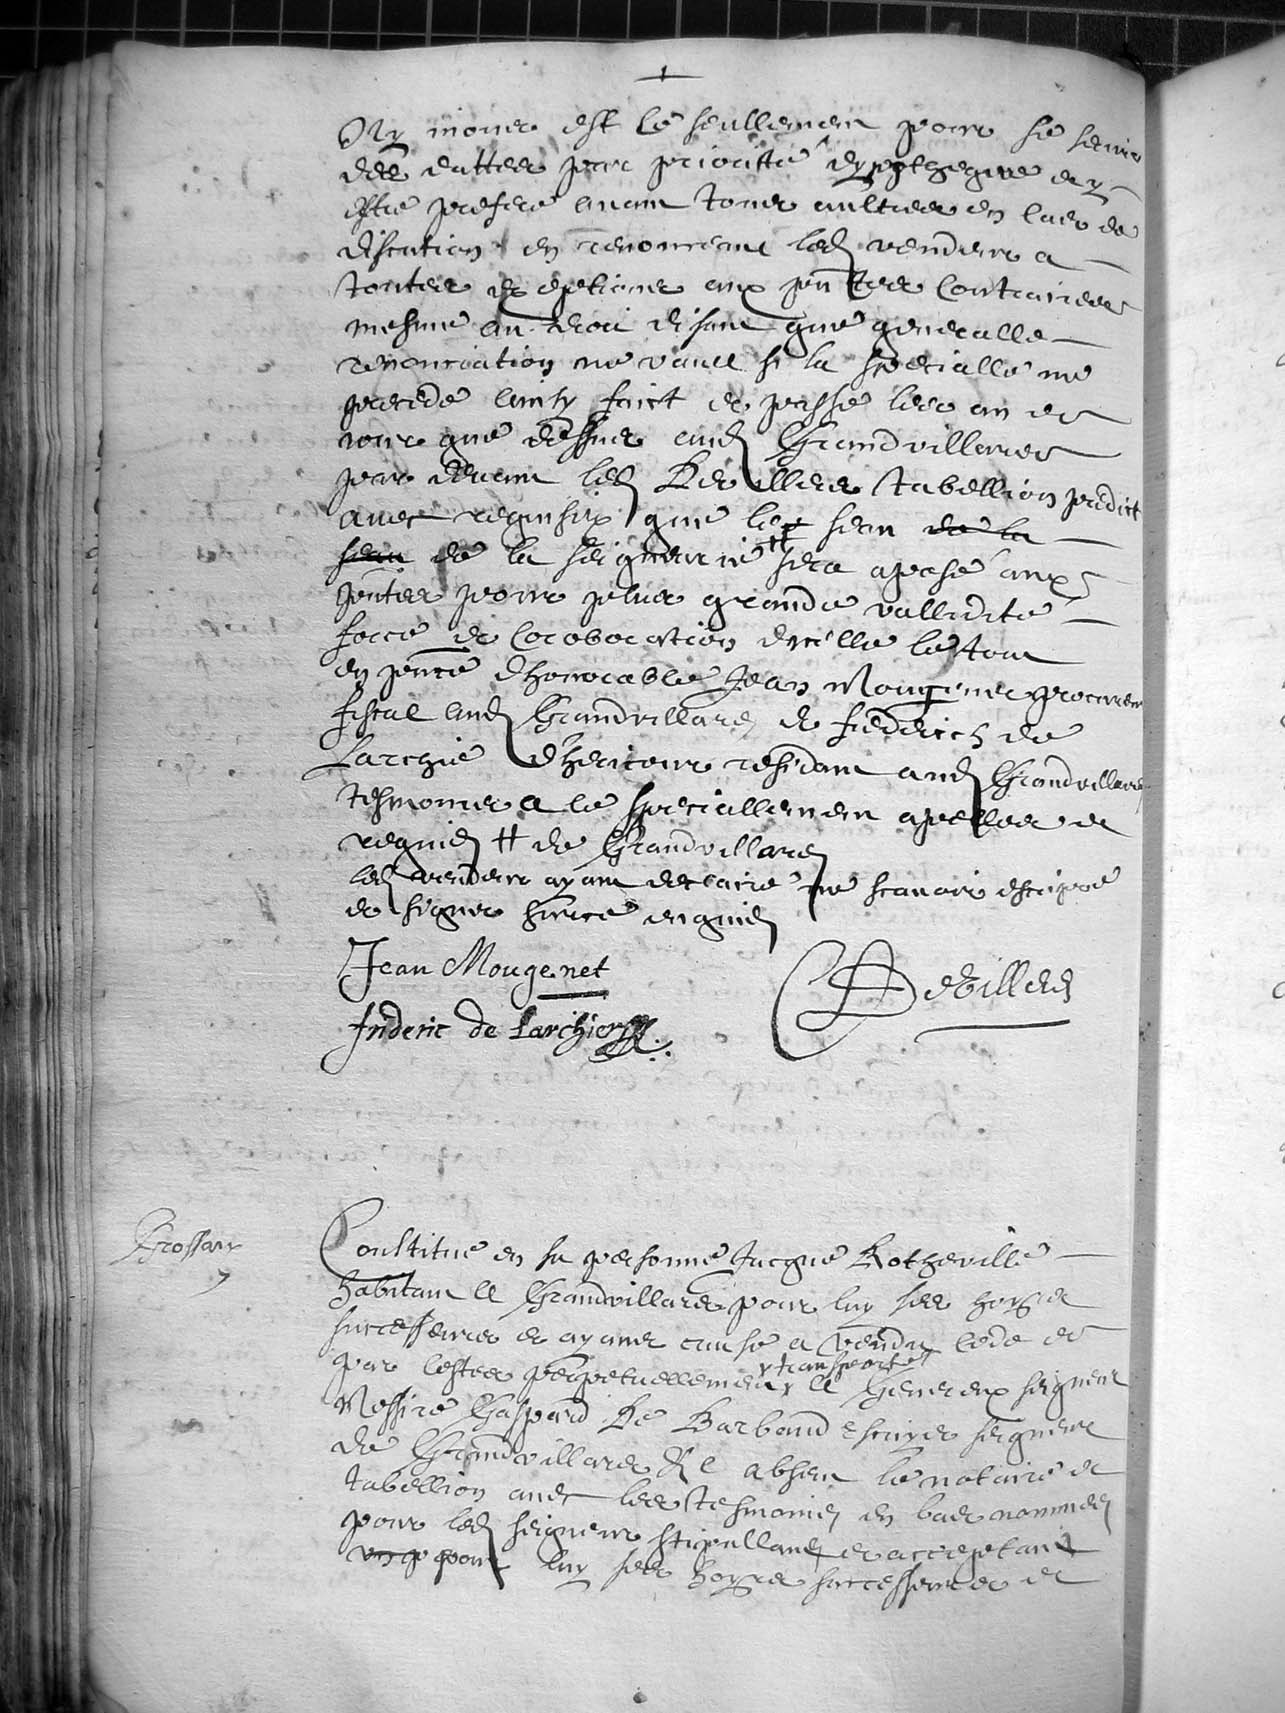 seullement pour se servir
des dattes pour priorité d'ypotheque et y
estre preferé avant tous aultres en cas de
discution en renonceant led vendeur a
toutes exeptions aux pntes contraires
mesme au droit disant que generalle
renonciation ne vault si la specialle ne
precede ainsy faict et passé les an et
jour que dessus aud Grandvillars
par devant led Devillers tabellion predict
avec requisi͠o que le seau de la
seau de la seigneurie ++ sera aposé aux
pntes pour plus grande vallidité
force et corroboration d'icelle le tout
en pnce d'honorable Jean Mougenet procureur
fiscal aud Grandvillars et Frederich de
Larchie d'Hericour residant aud Grandvillars
tesmoins a ce speciallement apelles et
requis ++ de Grandvillars
led vendeur ayant declairé ne scavoir escripre
et signer enquis
Jean Mougenet
Devillers
frideric de Larchier
Grossay
Constitué en sa personne Jacque Rotheville
habitant a Grandvillars pour luy ses hoyrs
successeurs et ayans cause a vendu cedé et
transporté
par cestes perpetuellement a Genereux seigneur
Messire Gaspard De Barbaud Escuyer seigneur
de Grandvillars &c absent le notaire et
tabellion avec les tesmoins en bas nommes
pour led seigneur stipulland et acceptant
pour luy ses hoyrs successeurs et